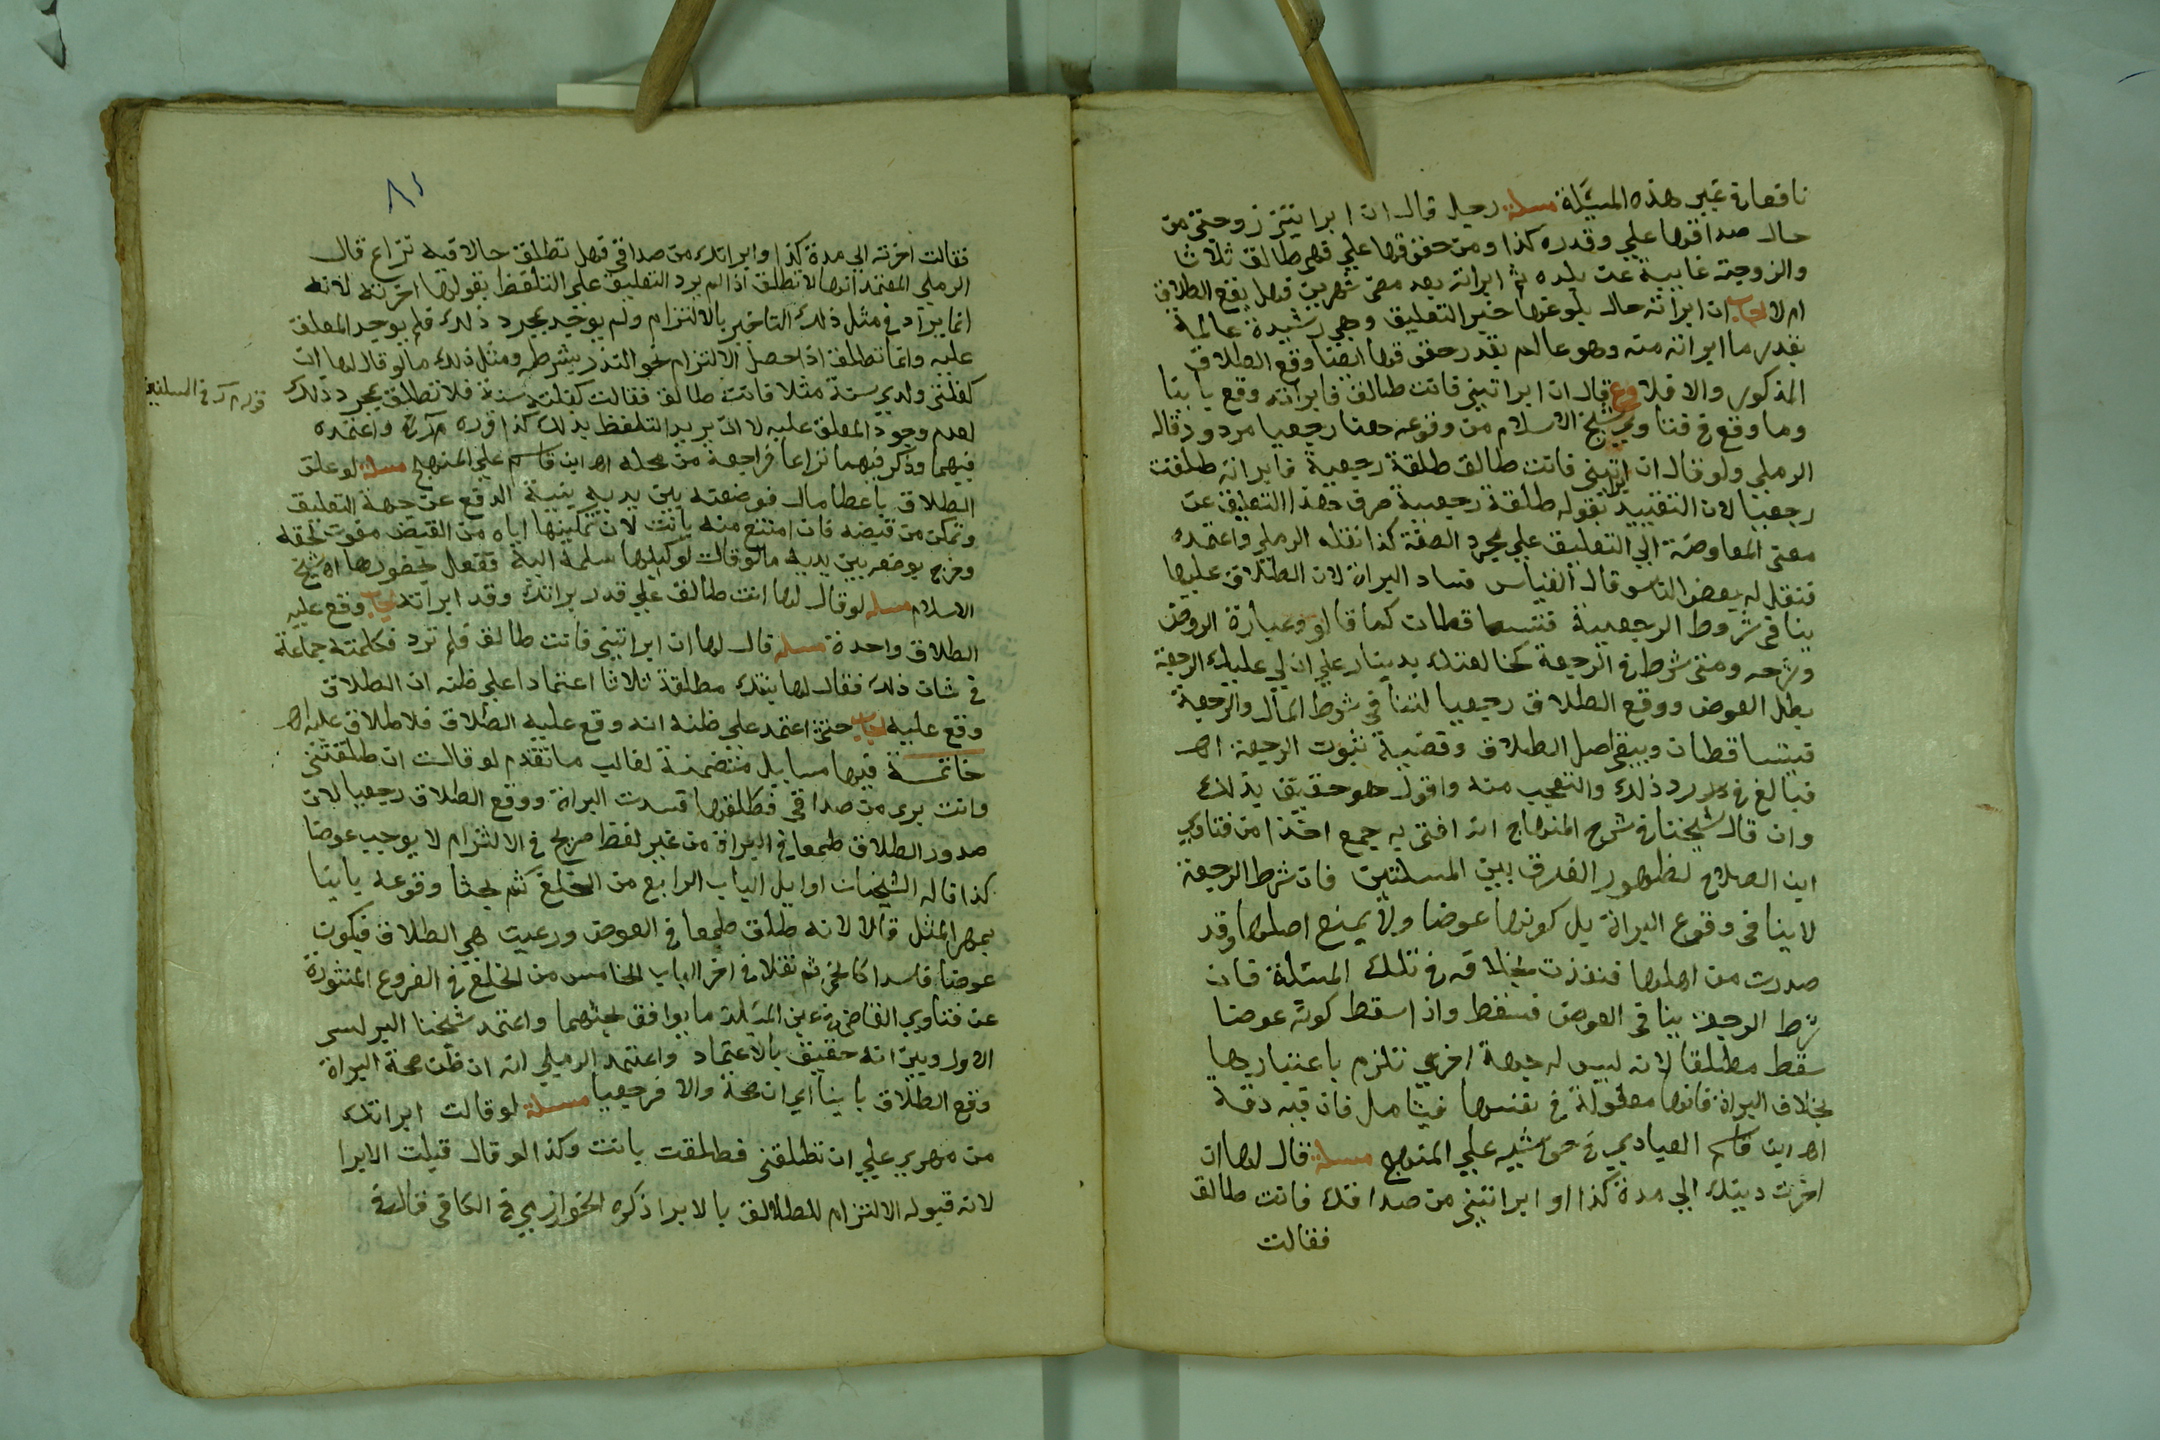 نا فعارة غير هذه المسئلة مسئلة رجل قال ان ابراتني زوجتي من
حال صداقها علي وقدره كذا ومن حقوقها علي فهي طالق ثلاثا
والزوجة غايبة عن بلده ثم ابراته بعد مضي شهرين فهل يقع الطلاق
ام لا اجاب ان ابراته حال بلوغها خبر التعليق وهي رشيدة عالمة
بقدر ما ابراته منه وهو عالم بقدر حقوقها ايضا وقع الطلاق
المذكور والا فلا فرع قال ان ابراتيني فانت طالق فابراته وقع باينا
وما وقع في فتاوي شيخ الاسلام من وقوعه هنا رجعيا مردود قاله
الرملي ولو قال ان ابراتيني فانت طالق طلقة رجعية فابراته طلقت
رجعيا لان التقييد بقوله طلقة رجعية صرف هذا التعليق عن
معنى المعاوضة الي التعليق علي مجرد الصفة كذا نقله الرملي واعتمده
فنقل له بعض الناس وقال القياس فساد البراة لان الطلاق عليها
ينافي شروط الرجعية فتتساقطان كما قالو وعبارة الروض
وشرحه ومتى شرط في الرجعة كخالعتك بدينار علي ان لي عليك الرجعة
بطل العوض ووقع الطلاق رجعيا لتنافي شرط المال والرجعة
فيتساقطان ويبقي اصل الطلاق وقضية ثبوت الرجعة اهـ
فبالغ في رد ذلك والتعجب منه واقول هو حقيق بذلك
وان قال شيخنا في شرح المنهاج انه افتى به جمع اخذا من فتاوي
ابن الصلاح لظهور الفرق بين المسئلتين فان شرط الرجعة
لا ينافي وقوع البراة بل كونها عوضا ولا يمنع اصلها وقد
صدرت من اهلها فنفذت بخلافه في تلك المسئلة فان
شرط الرجعة ينافي العوض فسقط واذا سقط كونه عوضا
سقط مطلقا لانه ليس له جهة اخري تلزم باعتبارها
بخلاف البراة فانها معقولة في نفسها فيتامل فان فيه دقة
اهـ ابن قاسم العبادي في حواشيه علي المنهج مسئلة قال لها ان
اخرت دينك الي مدة كذا او ابراتيني من صداقك فانت طالق
فقالت
٨١
فقالت اخرته الي مدة كذا وابراتك من صداقي فهل تطلق حالا فيه نزاع قال
الرملي المعتمد انها لا تطلق اذا لم يرد التعليق علي التلفظ بقولها اخرته لانه
انما يراد في مثل ذلك التاخير بالالتزام ولم يوجد بمجرد ذلك فلم يوجد المعلق
عليه وانما تطلق اذا حصل الالتزام نحو النذر بشرطه ومثل ذلك ما لو قال لها ان
كفلتي ولدي سنة مثلا فانت طالق فقالت كفلته سنة فلا تطلق بمجرد ذلك
لعدم وجود المعلق عليه الا ان يريد التلفظ بذلك كذا قرره م ر واعتمده
فيهما وذكر فيهما نزاعا فراجعه من محله اهـ ابن قاسم علي المنهج مسئلة لو علق
الطلاق باعطا مال فوضعته بين يديه بنية الدفع عن جهة التعليق
وتمكن من قبضه فان امتنع منه بانت لان تمكينها اياه من القبض مفوت لحقه
وخرج بوضعه بين يديه ما لو قالت لوكيلها سلمه اليه ففعل بحضورها اهـ شيخ
الاسلام مسئلة لو قال لها انت طالق علي قدر براتك وقد ابراته اجاب وقع عليه
الطلاق واحدة مسئلة قال لها ان ابراتيني فانت طالق فلم ترد فكلمته جماعة
في شان ذلك فقال لها بنتك مطلقة ثلاثا اعتمادا علي ظنه ان الطلاق
وقع عليه اجاب حيث اعتمد علي ظنه انه وقع عليه الطلاق فلا طلاق عليه اهـ
خاتمة فيها مسايل متضمنة لغالب ما تقدم لو قالت ان طلقتني
وانت بري من صداقي فطلقها فسدت البراة ووقع الطلاق رجعيا لان
صدور الطلاق طمعا في البراة من غير لفظ صريح في الالتزام لا يوجب عوضا
كذا قاله الشيخان اوايل الباب الرابع من الخلع ثم بحثا وقوعه باينا
بمهر المثل قالا لانه طلق طمعا في العوض ورغبت هي الطلاق فيكون
عوضا فاسدا كالخمر ثم نقلا في اخر الباب الخامس من الخلع في الفروع المنثورة
عن فتاوي القاضي في عين المسئلة ما يوافق بحثهما واعتمد شيخنا البرلسي
الاول وبين انه حقيق بالاعتماد واعتمد الرملي انه ان ظن صحة البراة
وقع الطلاق باينا اي ان صحة والا فرجعيا مسئلة لو قالت ابراتك
من مهري علي ان تطلقني فطلقت بانت وكذا لو قال قبلت الابرا
لانه قبوله الالتزام للطلاق بالابرا ذكره الخوارزمي في الكافي قال